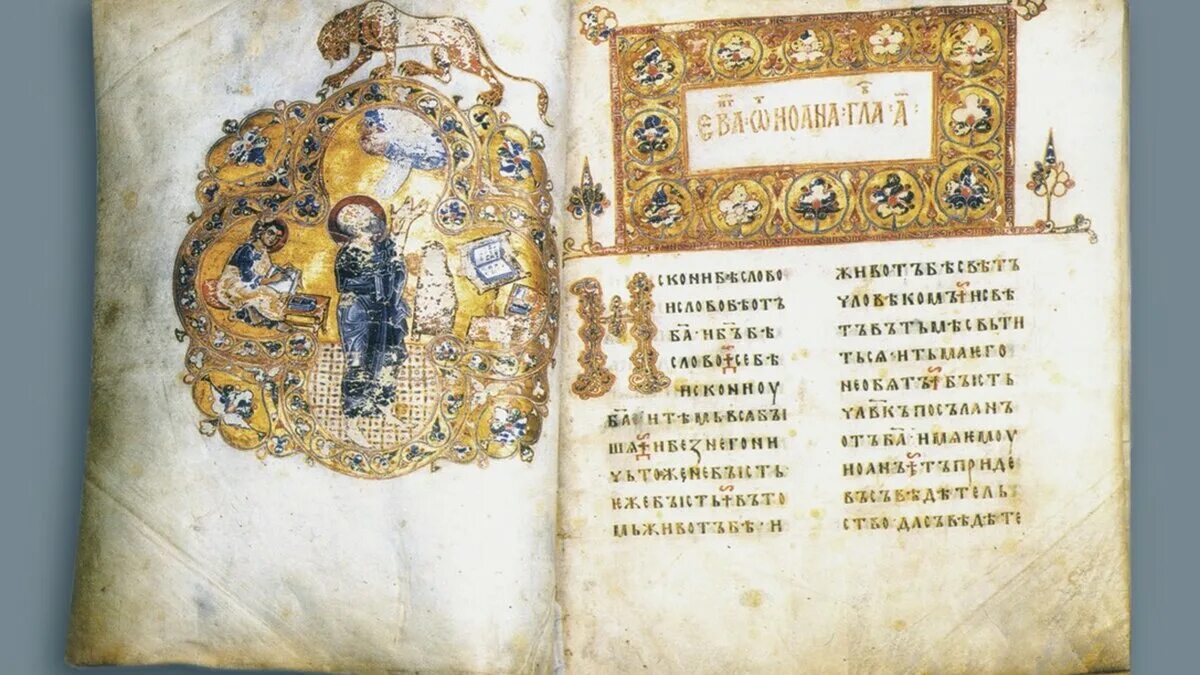 ЕВА҃ · Ѿ ИОАНА · ГЛА · А҃ ·
Исконибѣслово
ислововѣотъ
б҃а·иб҃ъбѣ
слово·себѣ
исконноу
б҃аитѣмьвсабы
шѧ·ибезнегони
чьтоженебысть
ѥжебысть·въто
мьживотъбѣ·и
животъбѣсвѣтъ
чловѣкомъ·исвѣ
тъвътьмѣсвьти
тьсѧ·итьмаѥго
необѧтъ·бысть
чл҃вкъпосъланъ
отъб҃а·имѧѥмоу
иоанъ·тъприде
въсъвѣдѣтель
ство·дасъвѣдѣте